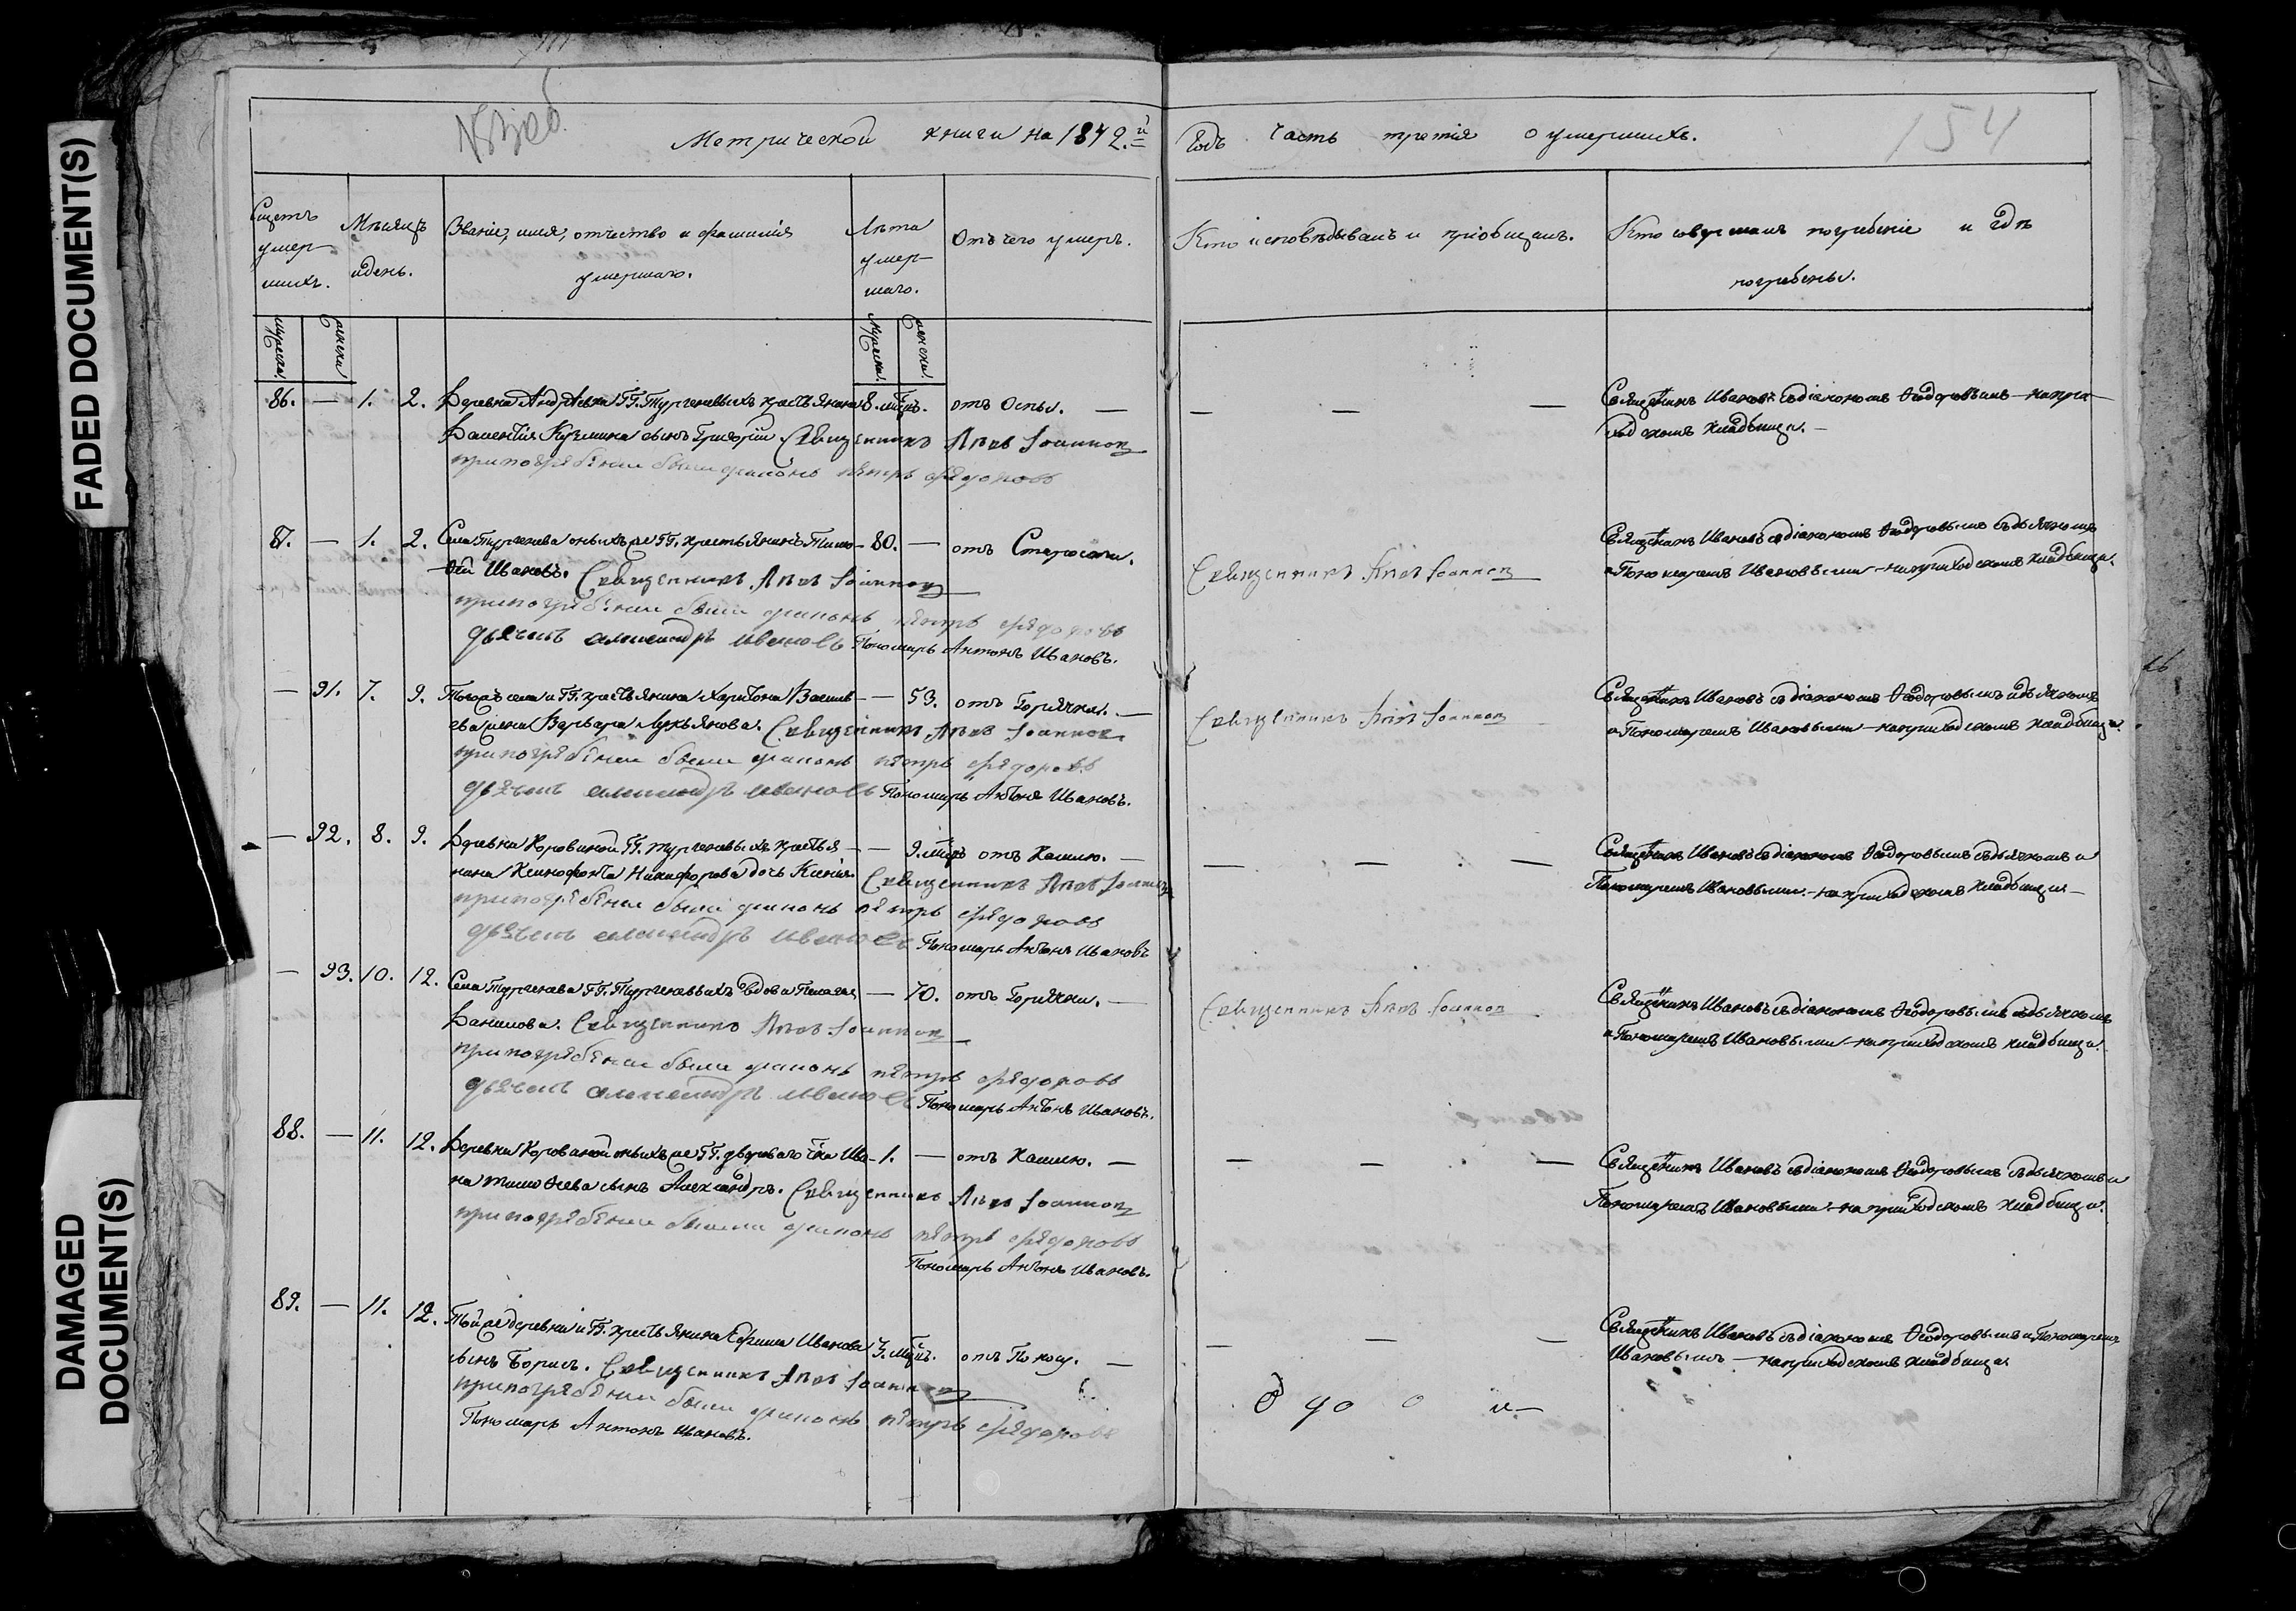 FADED DOCUMENT(S)
DAMAGED
DOCUMENT(S)
154
Метрической книги на 1842.й
годъ часть третiя о умершихъ.
Счетъ
умер-
шихъ.
Мѣсяцъ
и день.
Званiе, имя, отчество и фамилiя
умершаго.
Лѣта
умер-
шаго.
Отъ чего умеръ.
Кто исповѣдывалъ и прiобщалъ.
Кто совершалъ погребенiе и гдѣ
погребены.
Мужеска.
Женска.
Мужеска.
Женска.
86. — 1. 2. Деревни Андрѣевки ГГ. Тургеневыхъ крестьянина 8. мѣсц. отъ Оспы. —
Валентiя Кузмина сынъ Григорiй. Священникъ Левъ Iоанновъ
припогрябѣнии были дияконъ пѣтръ фядоровъ
— — —
Священникъ Ивановъ съ дiакономъ Ѳеодоровымъ — на прихо-
дскомъ кладбище. —
87. — 1. 2. Села Тургенева оныхъ же ГГ. крестьянинъ Тимо- 80. — отъ Старости.
ѳей Ивановъ. Священникъ Левъ Iоанновъ
припогрябѣнии были дияконъ пѣтръ фядоровъ
дьячекъ александръ ивановъ Пономарь Антонъ Ивановъ.
Священникъ Левъ Iоанновъ
Священникъ Ивановъ съ дiакономъ Ѳеодоровымъ съ дьячкомъ
и Пономаремъ Ивановыми — на приходскомъ кладбище.
— 91. 7. 9. Тогожъ села и ГГ. крестьянина Харитона Василь- — 53. отъ Горячки. —
ева жена Варвара Лукьянова. Священникъ Левъ Iоанновъ
припогрябѣнии были дияконъ пѣтръ фядоровъ
дьячекъ александръ ивановъ Пономарь Антонъ Ивановъ.
Священникъ Левъ Iоанновъ
Священникъ Ивановъ съ дiакономъ Ѳеодоровымъ и дьячкомъ
и Пономаремъ Ивановыми — на приходскомъ кладбище.
— 92. 8. 9. Деревни Коровиной ГГ. Тургеневыхъ крестья- — 9. мѣсц. отъ Кашлю. —
нина Ксенофонта Никифорова дочь Ксенiя. Священникъ Левъ Iоанновъ
припогрябѣнии были дияконъ пѣтръ фядоровъ
дьячекъ александръ ивановъ Пономарь Антонъ Ивановъ
— — —
Священникъ Ивановъ съ дiакономъ Ѳеодоровымъ съ дьячкомъ и
Пономаремъ Ивановыми — на приходскомъ кладбище —
— 93. 10. 12. Села Тургенева ГГ. Тургеневыхъ вдова Пелагея — 70. отъ Горячки. —
Данилова. Священникъ Левъ Iоанновъ
припогрябѣнии были дияконъ пѣтръ фядоровъ
дьячекъ александръ ивановъ Пономарь Антонъ Ивановъ.
Священникъ Левъ Iоанновъ
Священникъ Ивановъ съ дiакономъ Ѳеодоровымъ съ дьячкомъ
и Пономаремъ Ивановыми — на приходскомъ кладбище.
88. — 11. 12. Деревни Коровиной оныхъ же ГГ. двороваго Ива- 1. — отъ Кашлю. —
на Тимоѳеева сынъ Александръ. Священникъ Левъ Iоанновъ
припогрябѣнии были дияконъ пѣтръ фядоровъ
Пономарь Антонъ Ивановъ.
— — —
Священникъ Ивановъ съ дiакономъ Ѳеодоровымъ съ дьячкомъ и
Пономаремъ Ивановыми — на приходскомъ кладбище.
89. — 11. 12. Той же деревни и ГГ. крестьянина Ефима Иванова 3. мѣсц. отъ Поносу. —
сынъ Борисъ. Священникъ Левъ Iоанновъ
припогрябѣнии были дияконъ пѣтръ фядоровъ
Пономарь Антонъ Ивановъ.
— — —
Священникъ Ивановъ съ дiакономъ Ѳеодоровымъ и Пономаремъ
Ивановымъ — на приходскомъ кладбище